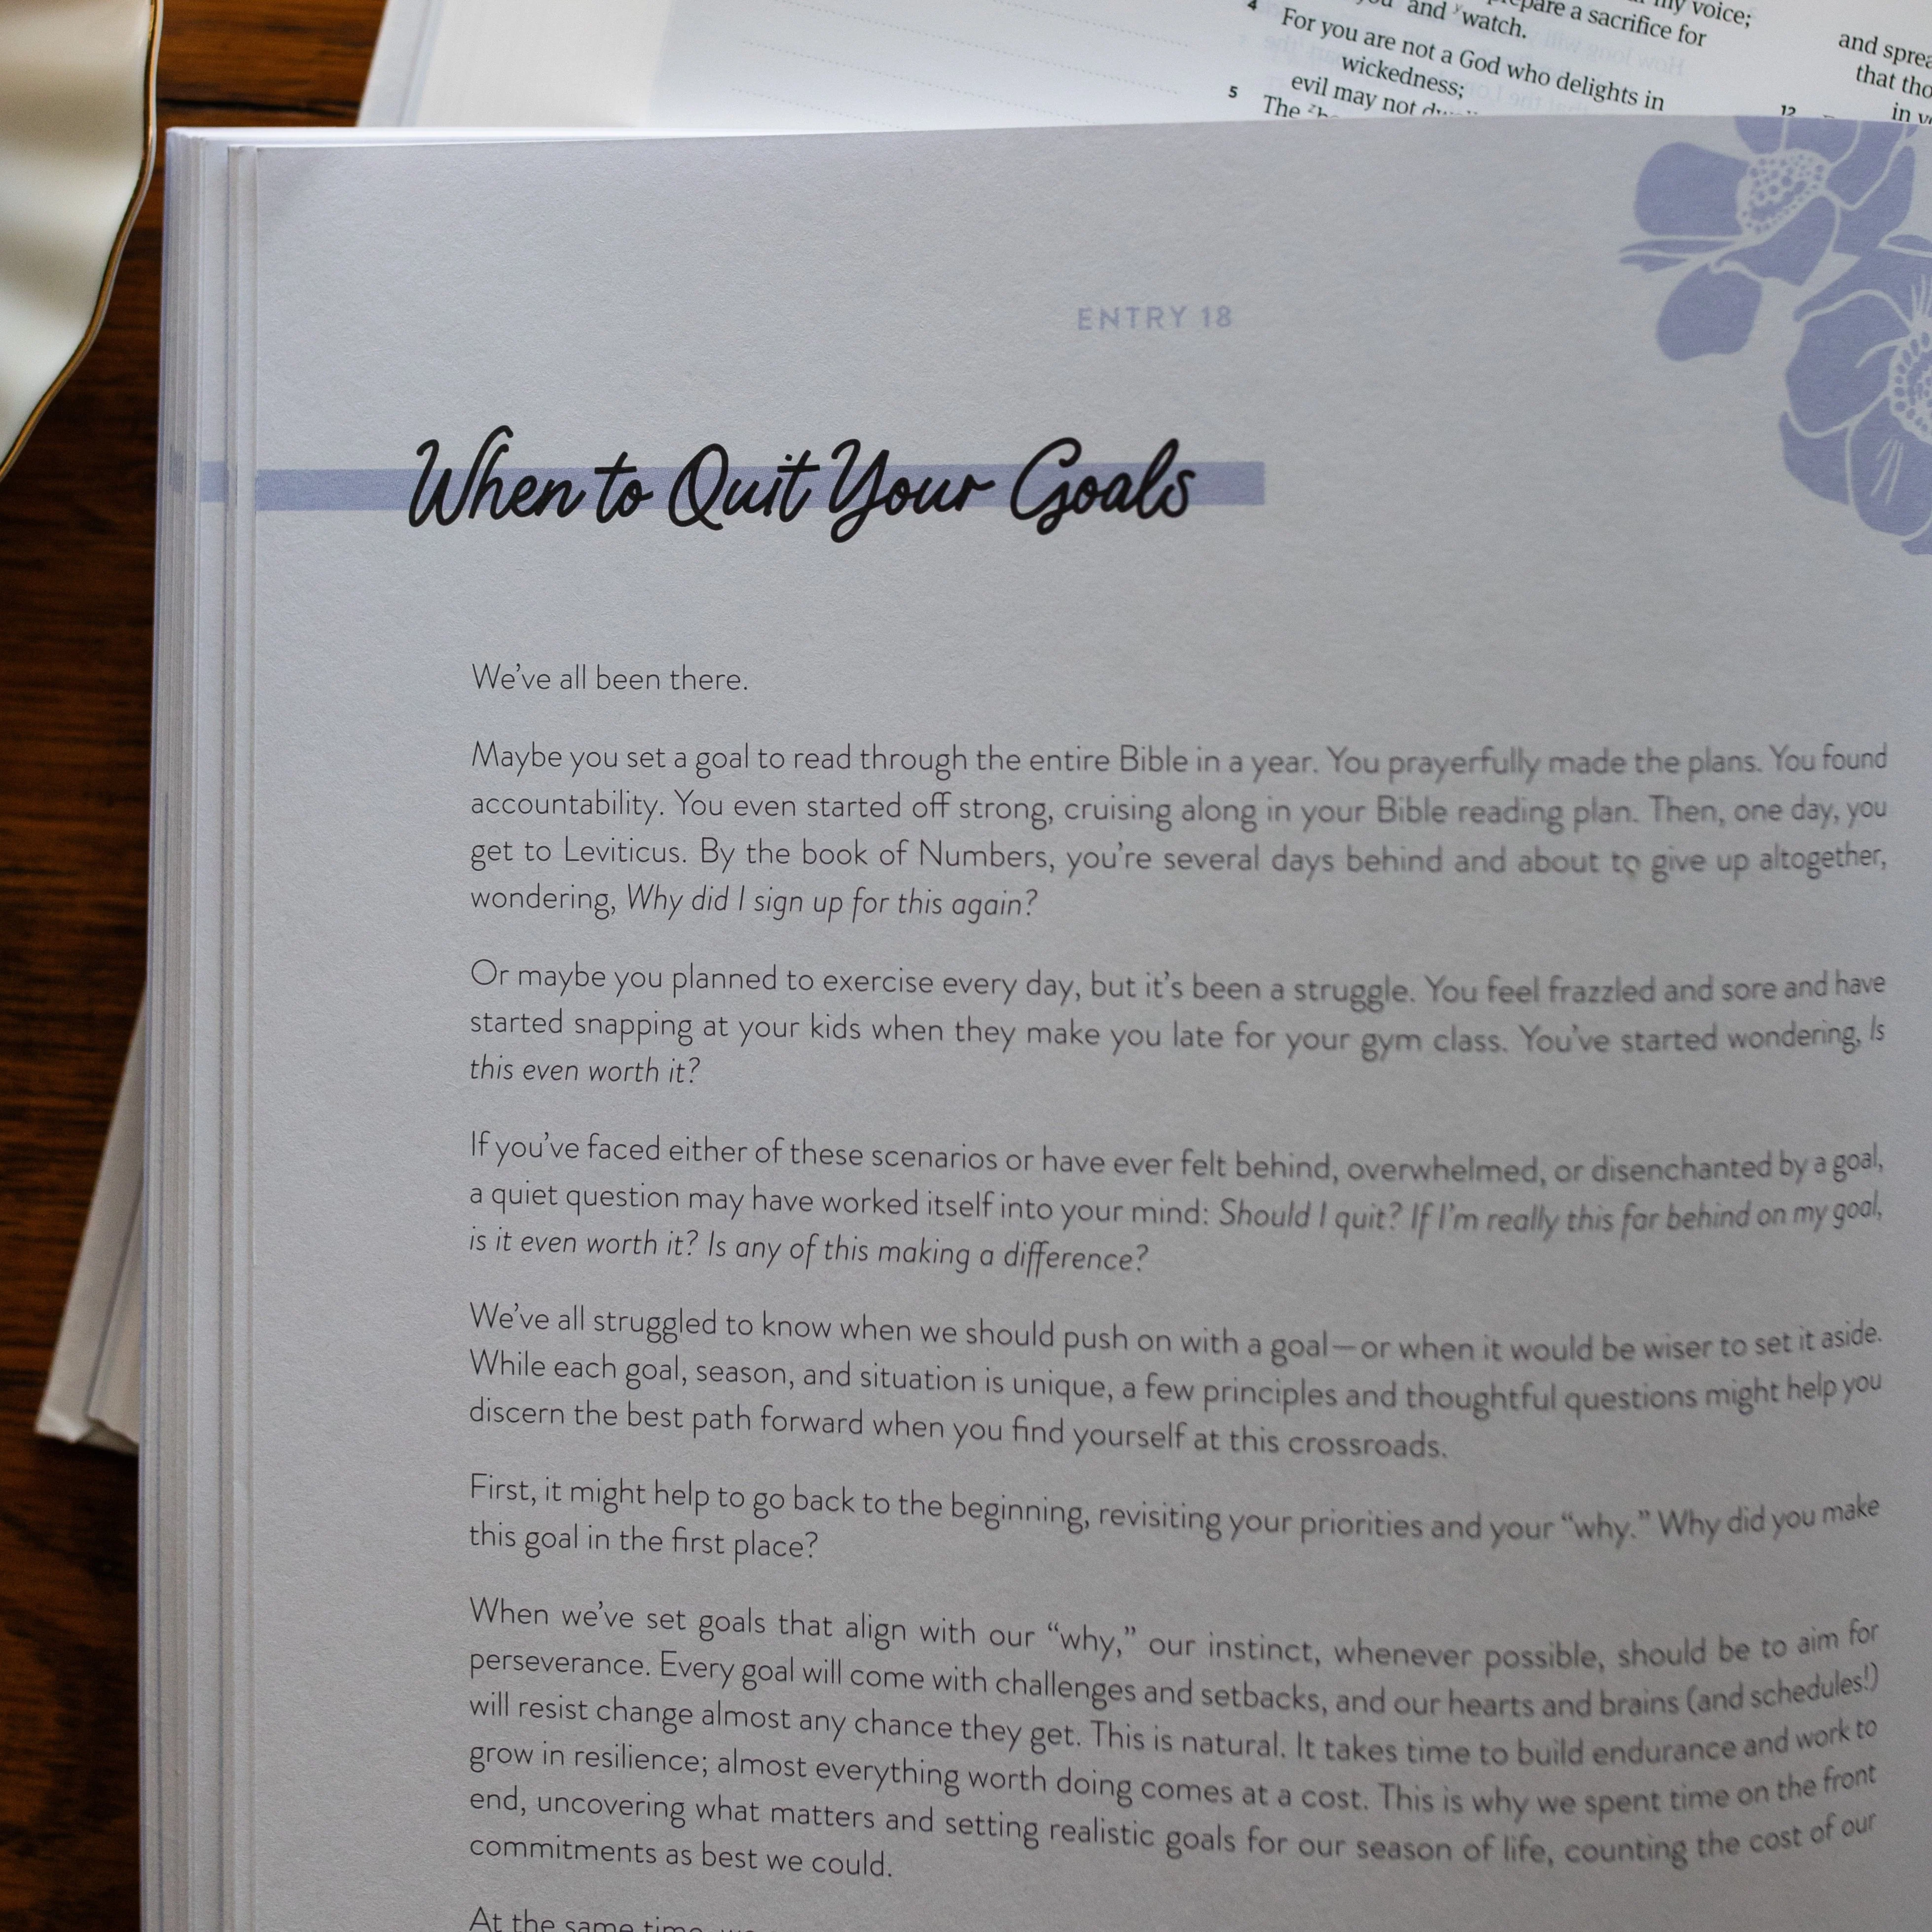 my voice;
prepare a sacrifice for
and watch.
4 For you are not a God who delights in
wickedness;
evil may not
5 The
that
12
in
ENTRY 18
When to Quit Your Goals
We've all been there.
Maybe you set a goal to read through the entire Bible in a year. You prayerfully made the plans. You found
accountability. You even started off strong, cruising along in your Bible reading plan. Then, one day, you
get to Leviticus. By the book of Numbers, you're several days behind and about to give up altogether,
wondering, Why did I sign up for this again?
Or maybe you planned to exercise every day, but it's been a struggle. You feel frazzled and sore and have
started snapping at your kids when they make you late for your gym class. You've started wondering, Is
this even worth it?
If you've faced either of these scenarios or have ever felt behind, overwhelmed, or disenchanted by a goal,
a quiet question may have worked itself into your mind: Should I quit? If I'm really this far behind on my goal,
is it even worth it? Is any of this making a difference?
We've all struggled to know when we should push on with a goal—or when it would be wiser to set it aside.
While each goal, season, and situation is unique, a few principles and thoughtful questions might help you
discern the best path forward when you find yourself at this crossroads.
First, it might help to go back to the beginning, revisiting your priorities and your “why.” Why did you make
this goal in the first place?
When we've set goals that align with our “why,” our instinct, whenever possible, should be to aim for
perseverance. Every goal will come with challenges and setbacks, and our hearts and brains (and schedules!)
will resist change almost any chance they get. This is natural. It takes time to build endurance and work to
grow in resilience; almost everything worth doing comes at a cost. This is why we spent time on the front
end, uncovering what matters and setting realistic goals for our season of life, counting the cost of our
commitments as best we could.
At the same time,